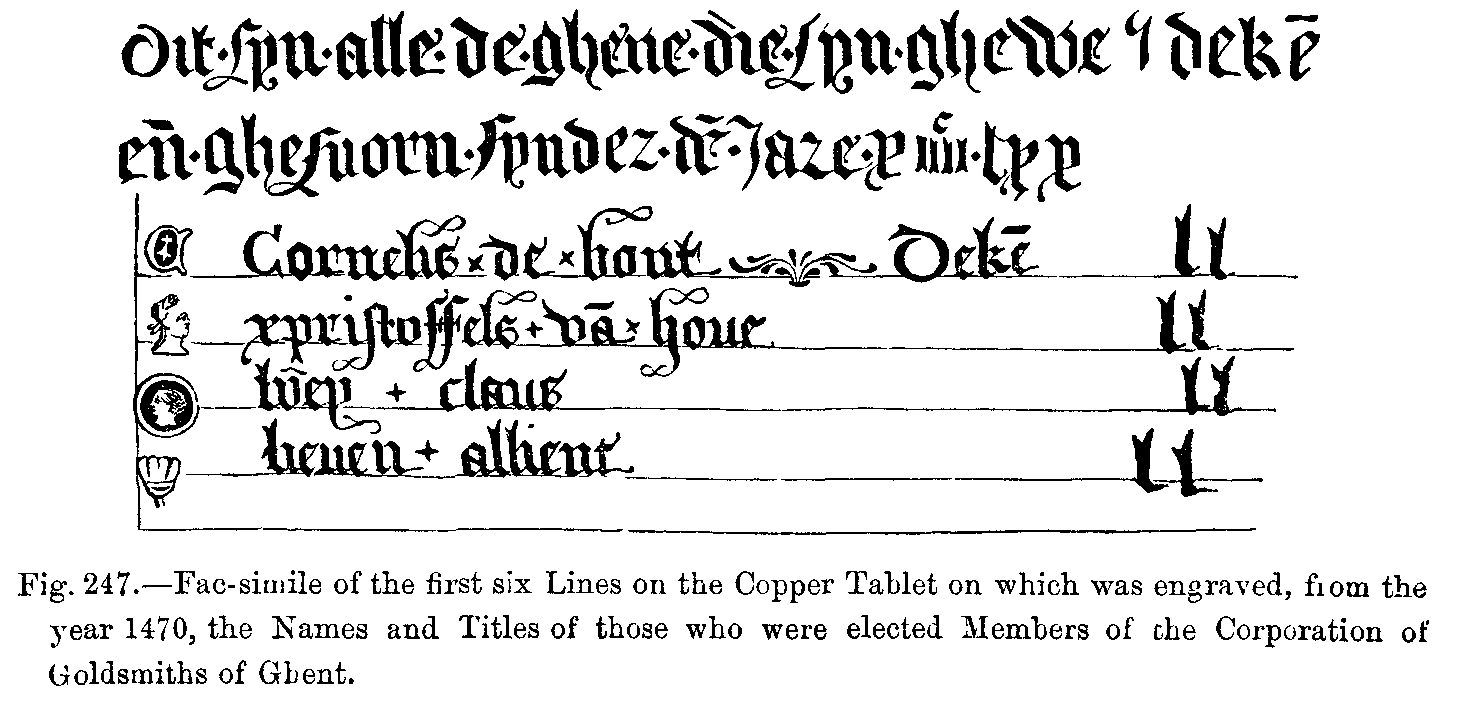 Dit·syn·alle·de·ghene·die·syn·ghewe deken̄
en̄·ghesworn·synder·Jare·x iiiic·lxx
Cornelis × de × bōnt Dekē ll
xpristoffels + vā × houe ll
claus ll
heuen + ll
Fig. 247.—Fac-simile of the first six Lines on the Copper Tablet on which was engraved, from the
year 1470, the Names and Titles of those who were elected Members of the Corporation of
Goldsmiths of Ghent.